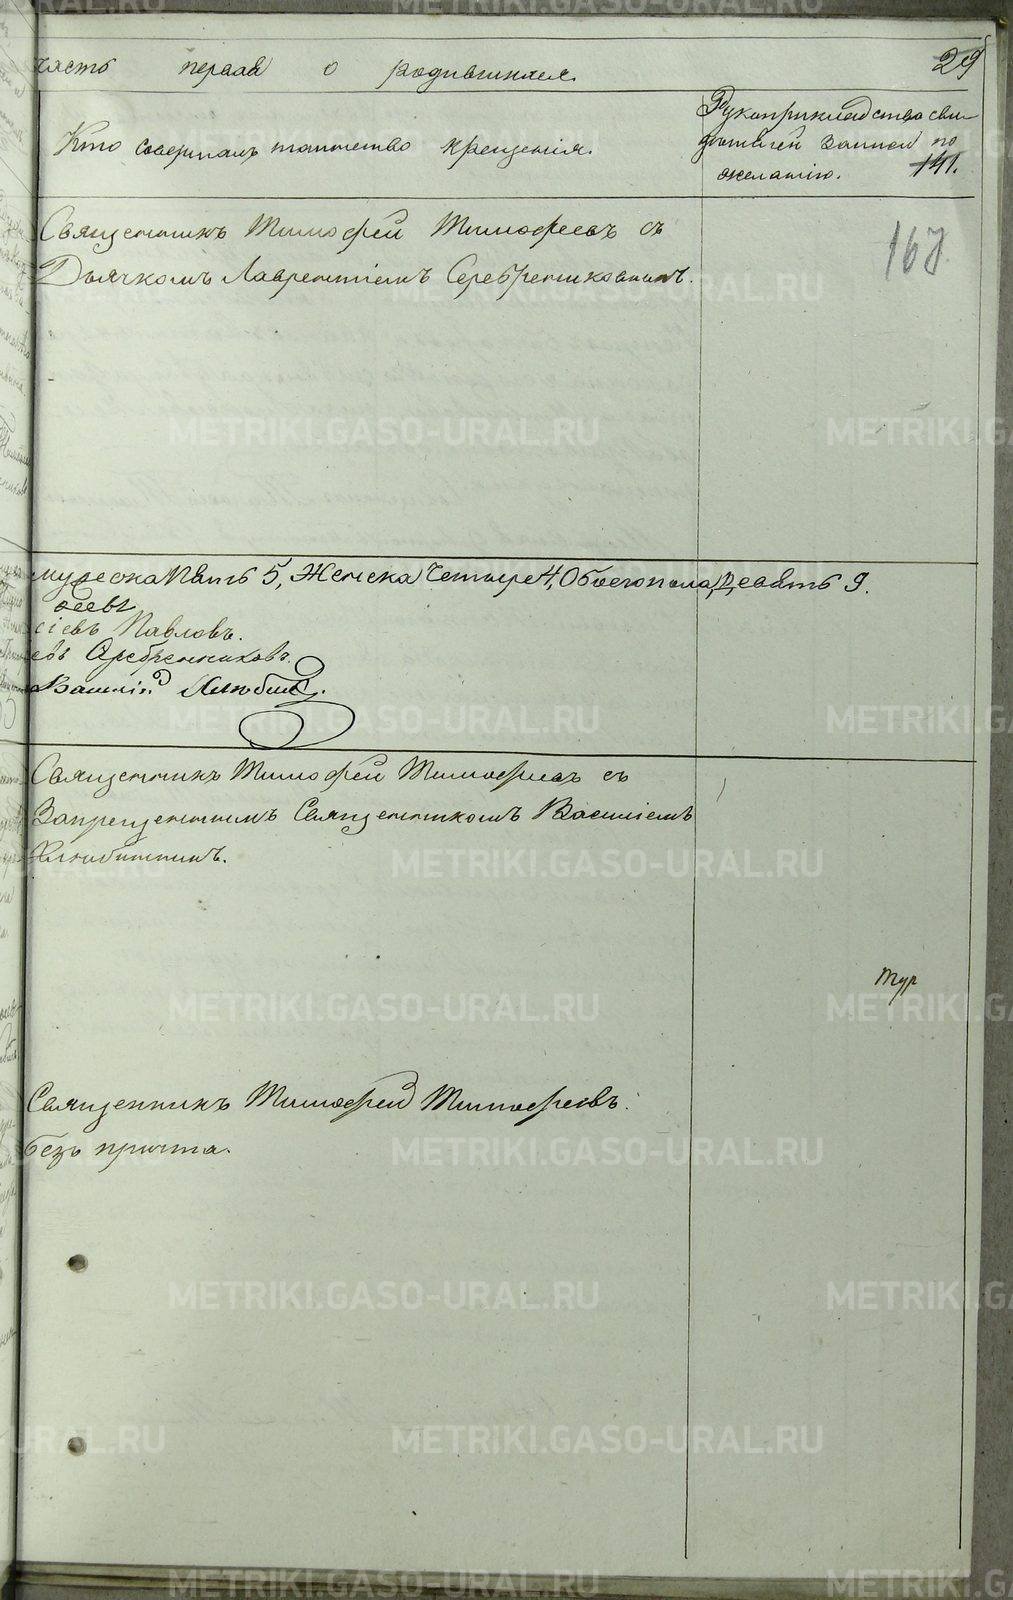 часть первая о родившихся.
29
Кто совершалъ таинство крещенія.
Рукоприкладство сви-
дѣтелей записи по
желанію.
141.
Священникъ Тимофей Тимофеевъ съ
Дьячкомъ Лаврентіемъ Серебрениковымъ.
167
мужеска Пять 5, Женска Четыре 4, Обоего пола, девять 9.
феевъ
сіевъ Павловъ.
евъ Серебренниковъ.
Василій Хлюбинъ.
Священникъ Тимофей Тимофеевъ съ
Запрещеннымъ Священникомъ Василіемъ
Хлюбинымъ.
Тур
Священникъ Тимофей Тимофеевъ.
безъ причта.
METRIKI.GASO-URAL.RU